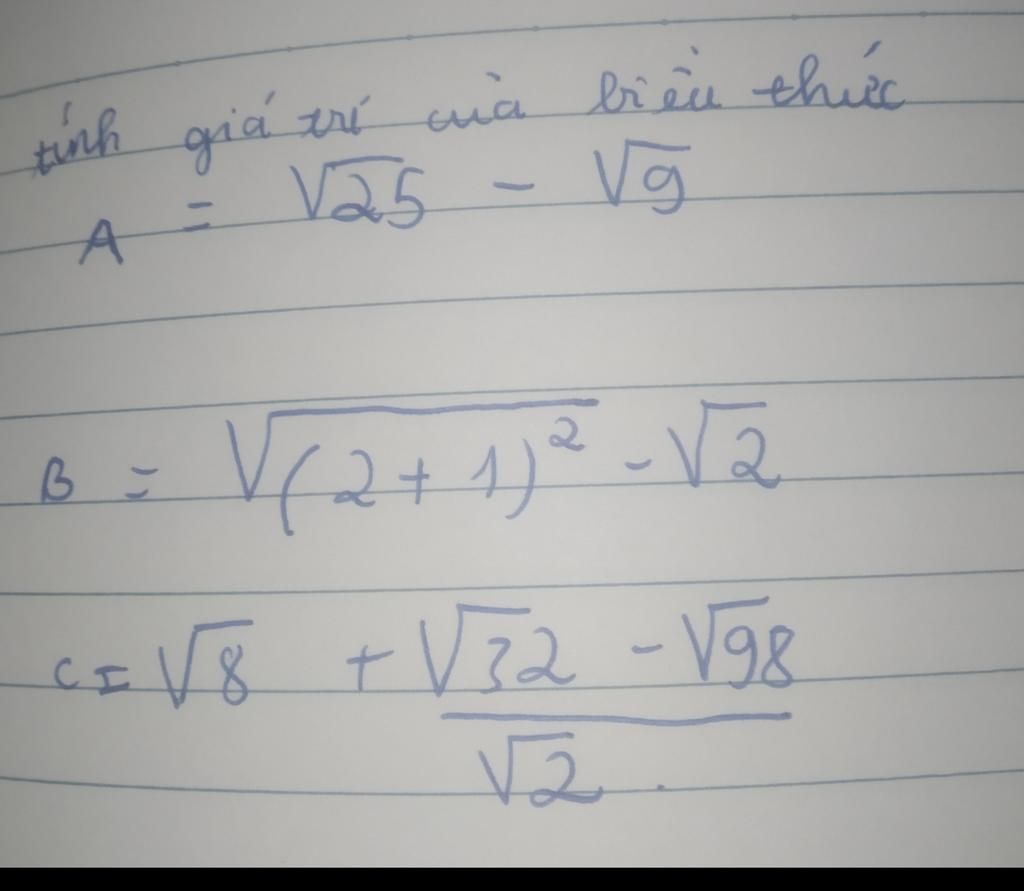 tính giá trí cuả biểu thức
A = √25 - √9
B = √(2+1)² - √2
C = √8 + √32 - √98
√2.